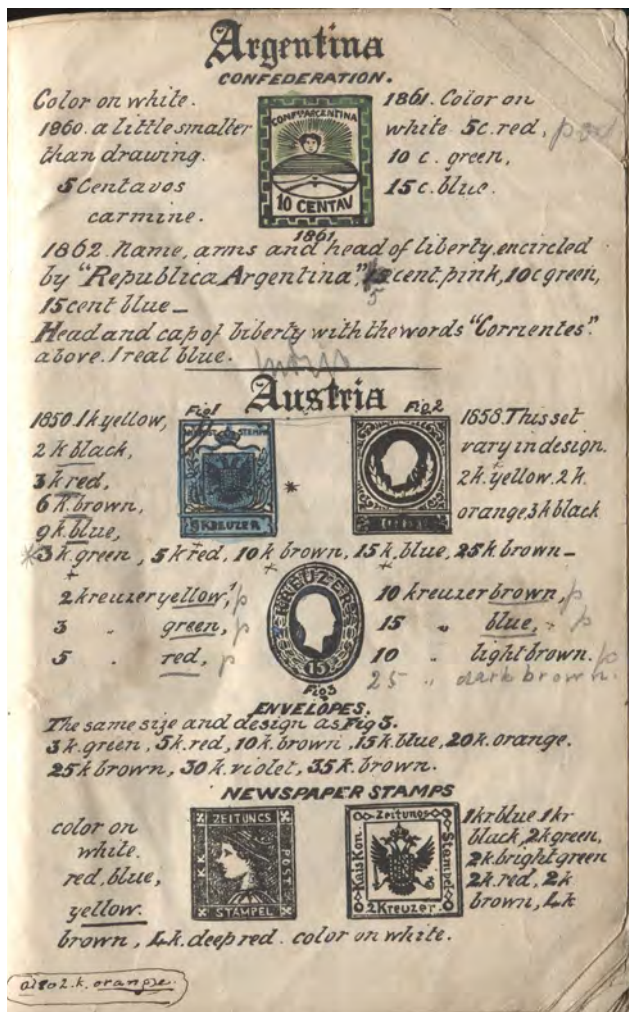 Argentina
CONFEDERATION.
Color on white.
1860. a little smaller
than drawing.
5 Centavos
carmine.
CONFON ARGENTINA
10 CENTAV
1861
1861. Color on
white 5c. red,
10 c. green,
15 c. blue.
1862. Name, arms and head of liberty, encircled
by "Republica Argentina", cent. pink, 10c green,
5
15 cent blue _
Head and cap of biberty with the words "Corrientes".
above. 1 real blue.
Austria
1850. 1k yellow,
2 k black,
3 k red,
6 k. brown,
9k. blue,
Fig 1
STEMPEL
9 KREUZER
*
Fig. 2
1858. This set
vary in design.
2k. yellow. 2 k.
orange, 3k black
*3 k. green, 5 k red, 10 k brown, 15 k. blue, 25 k. brown _
2 kreuzer yellow, p
3 " green, p
5 " red, p
KREUZER
15
Fig 3
10 kreuzer brown, p
15 " blue, " p
10 " light brown. p
25 " dark brown.
ENVELOPES.
The same size and design as Fig 3.
3 k. green, 5k. red, 10 k. brown, 15 k. blue, 20 k. orange.
25 k brown, 30 k. violet, 35 k. brown.
NEWSPAPER STAMPS
color on
white.
red, blue,
yellow.
ZEITUNCS
K K
POST
STAMPEL
Zeitungs
Kais Kon.
Stampel
2 Kreuzer.
1kr blue 1kr
black, 2k green,
2k. bright green
2k. red, 2k
brown, 4k
brown, 4 k. deep red. color on white.
also 2. k. orange.